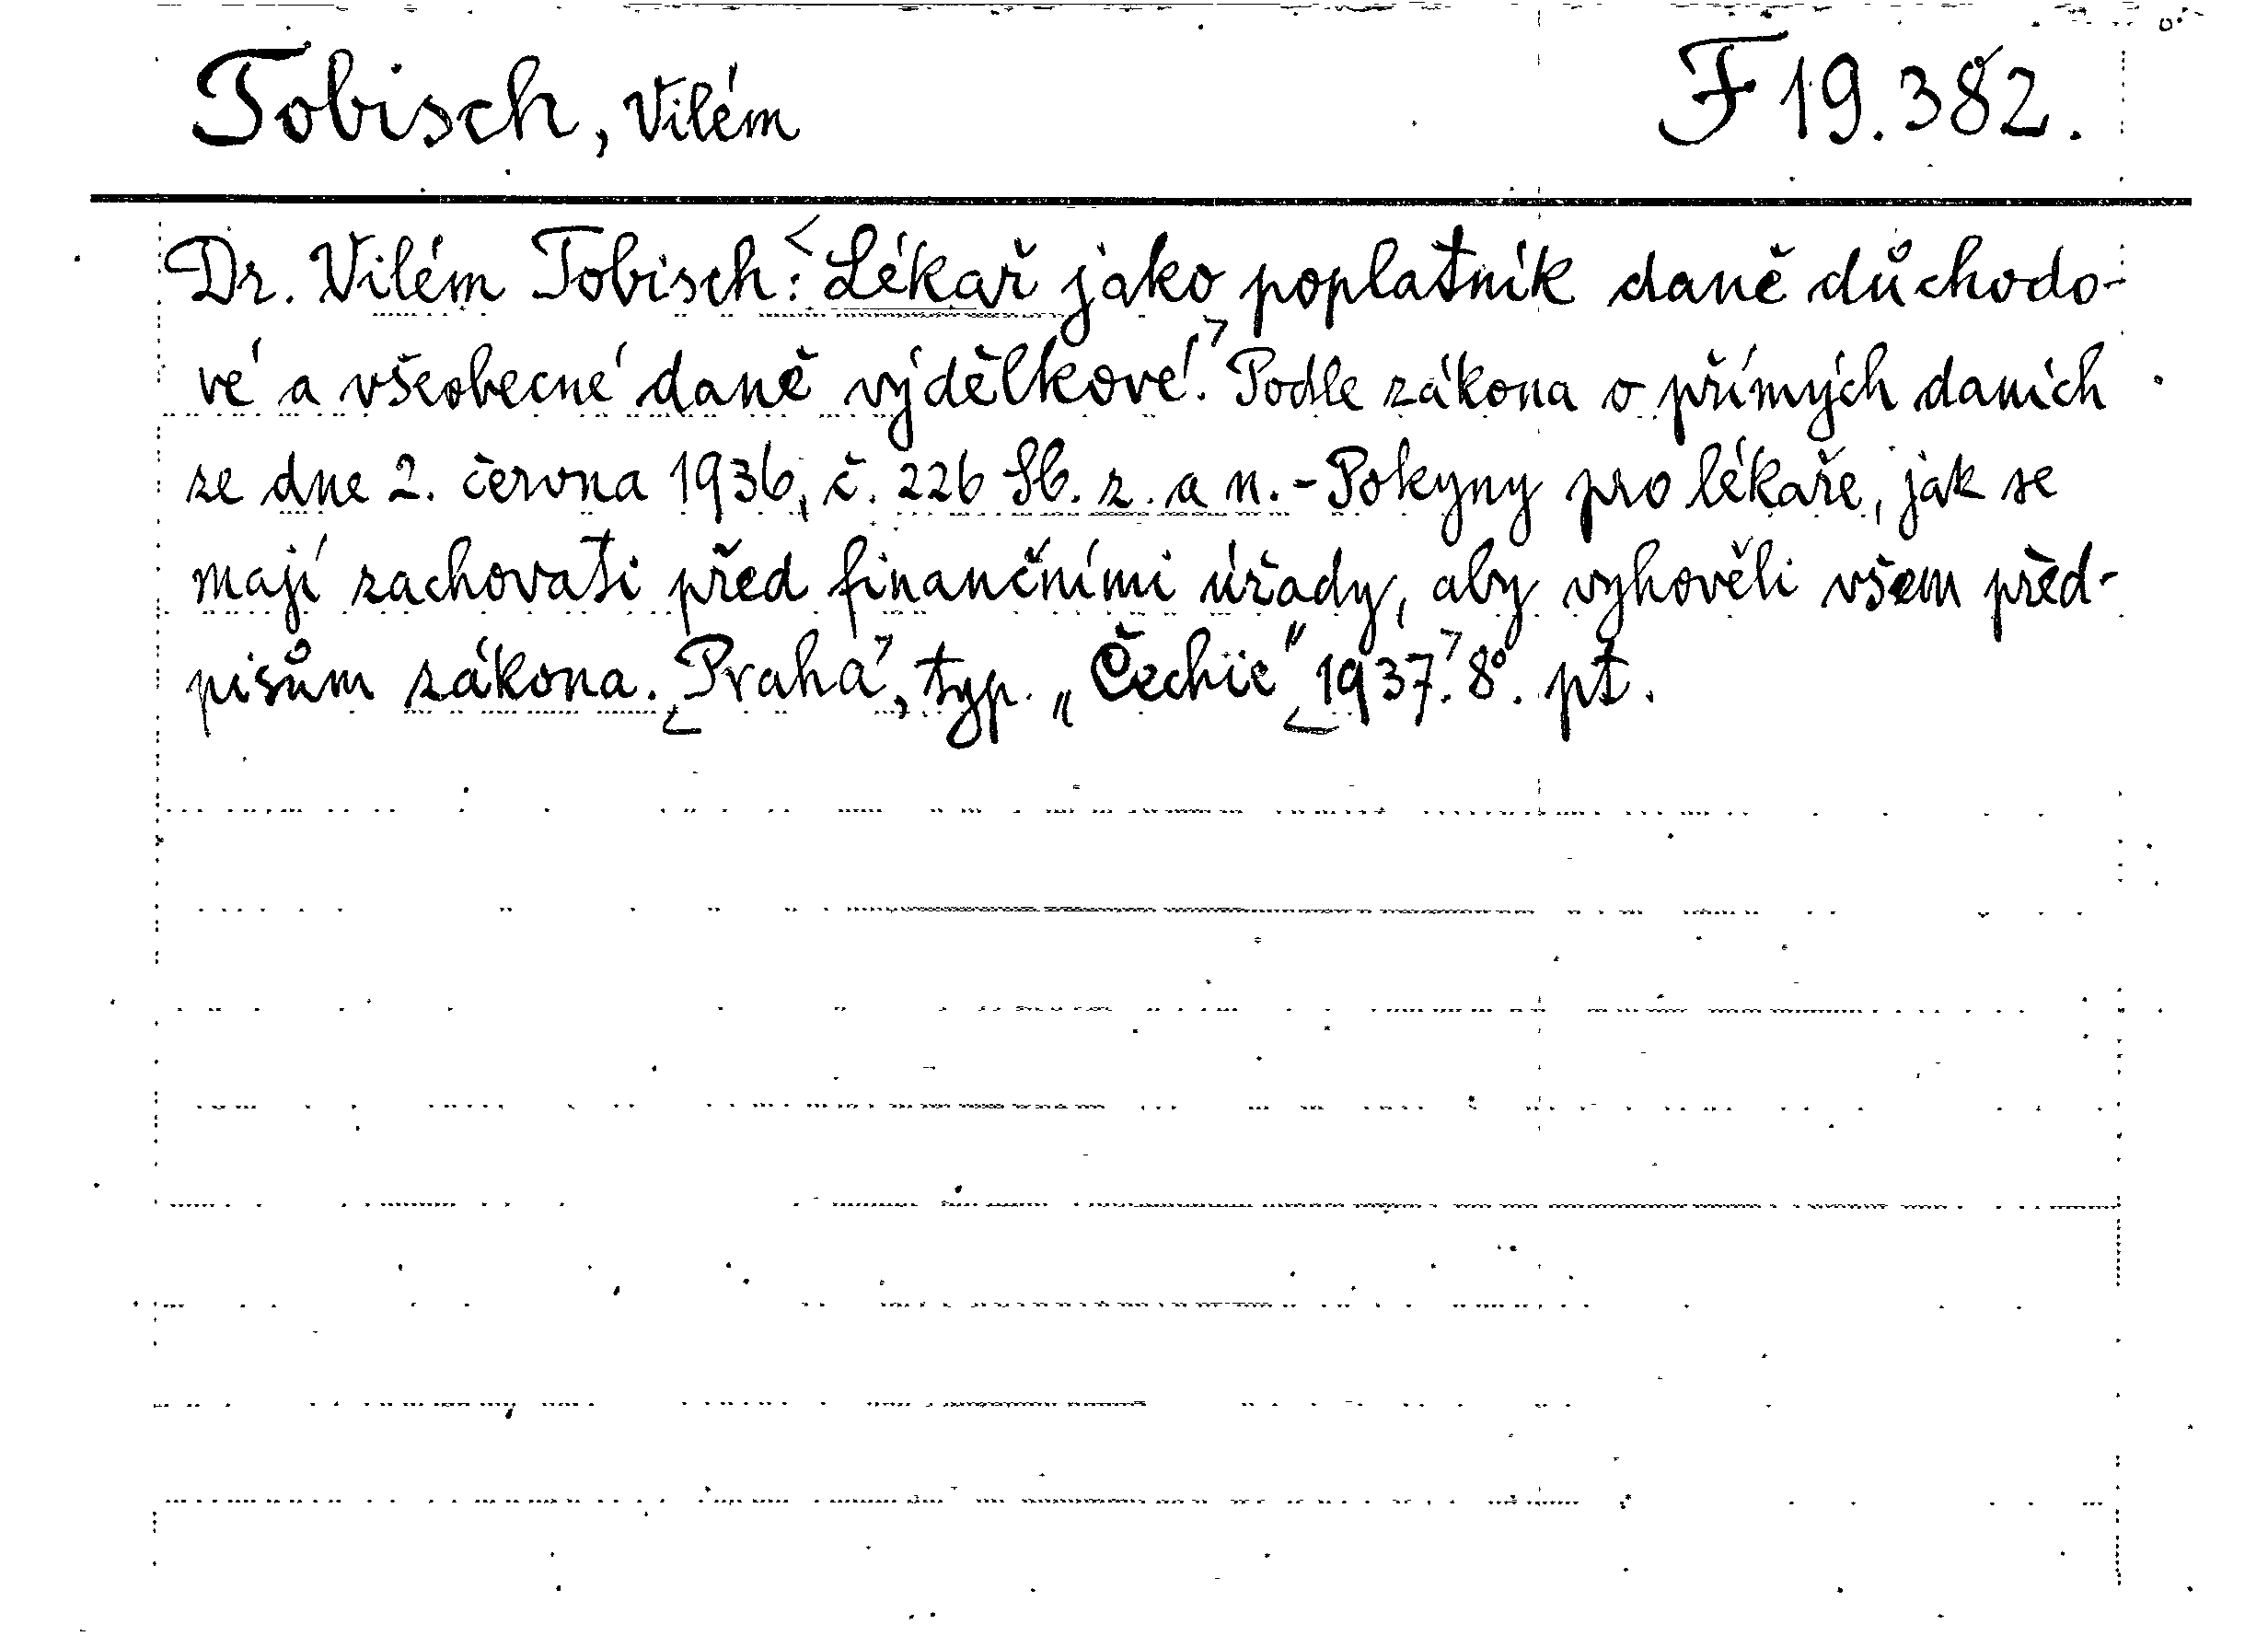 Tobisch, Vilém F 19.382.
Dr. Vilém Tobisch: <Lékař jako poplatník daně důchodo-
vé a všeobecné daně výdělkové.> Podle zákona o přímých daních
ze dne 2. června 1936, č. 226 Sb. z. a n. - Pokyny pro lékaře, jak se
mají zachovati před finančními úřady, aby vyhověli všem před-
pisům zákona. <Praha>, typ. „Čechie" <1937.> 8°. pt.